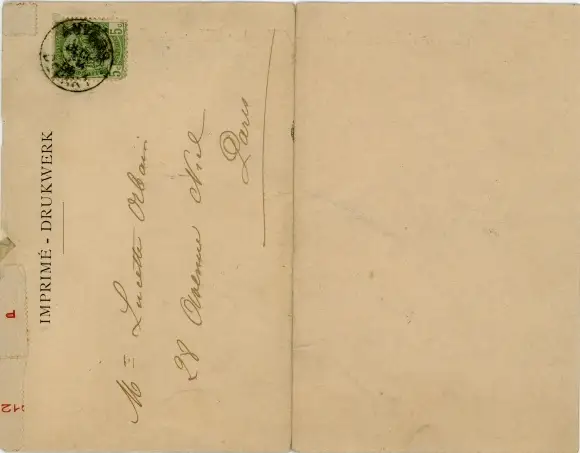 IMPRIMÉ - DRUKWERK
Mme Lucette Orbain
28 Avenue Niel
Paris
5c 5c
P
212